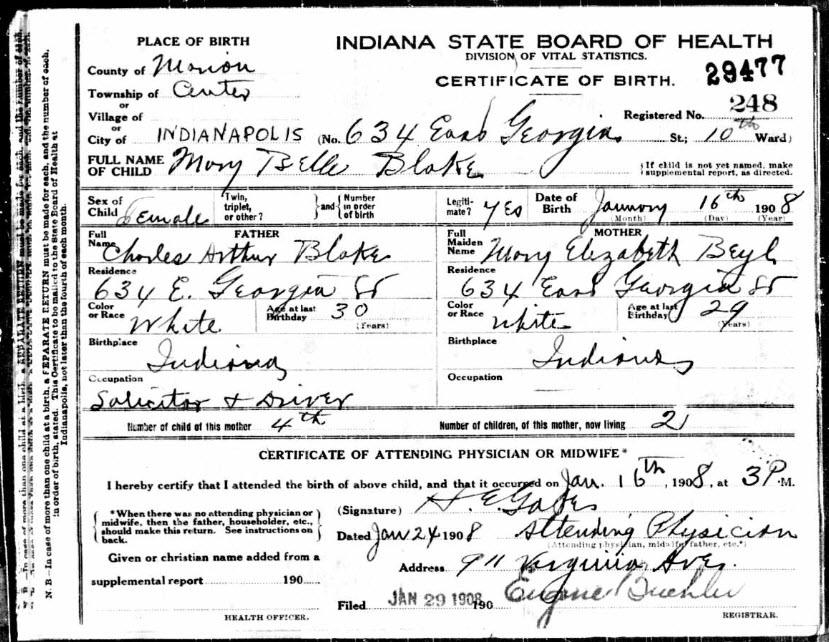 PLACE OF BIRTH
INDIANA STATE BOARD OF HEALTH
DIVISION OF VITAL STATISTICS.
CERTIFICATE OF BIRTH.
29477
County of Marion
Township of Center
or
Village of
or
Registered No. 248
City of INDIANAPOLIS (No. 634 East Georgia St.; 10th Ward)
FULL NAME OF CHILD Mary Belle Blake
{If child is not yet named, make supplemental report, as directed.
Sex of Child Female
Twin, triplet, or other?
and
Number in order of birth
Legitimate? Yes
Date of Birth January 16th 1908
(Month) (Day) (Year)
FATHER
Full Name Charles Arthur Blake
Residence
634 E. Georgia St
Color or Race White
Age at last Birthday 30
(Years)
Birthplace
Indiana
Occupation
Solicitor + Driver
MOTHER
Full Maiden Name Mary Elizabeth Beyl
Residence
634 East Georgia St
Color or Race White
Age at last Birthday 29
(Years)
Birthplace
Indiana
Occupation
Number of child of this mother 4th
Number of children, of this mother, now living 2
CERTIFICATE OF ATTENDING PHYSICIAN OR MIDWIFE*
I hereby certify that I attended the birth of above child, and that it occured on Jan. 16th, 1908, at 3 P.M.
*When there was no attending physician or midwife, then the father, householder, etc., should make this return. See instructions on back.
(Signature) H. E. Gabe
Dated Jan 24 1908 Attending Physician
(Attending physician, midwife, father, etc.*)
Given or christian name added from a
supplemental report 190
Address 911 Virginia Ave.
Filed JAN 29 1908 190 Eugene Buehler
HEALTH OFFICER.
REGISTRAR.
N. B.—In case of more than one child at a birth, a SEPARATE RETURN must be made for each, and the number of each,
in order of birth, stated. This Certificate to be mailed to the State Board of Health at
Indianapolis, not later than the fourth of each month.